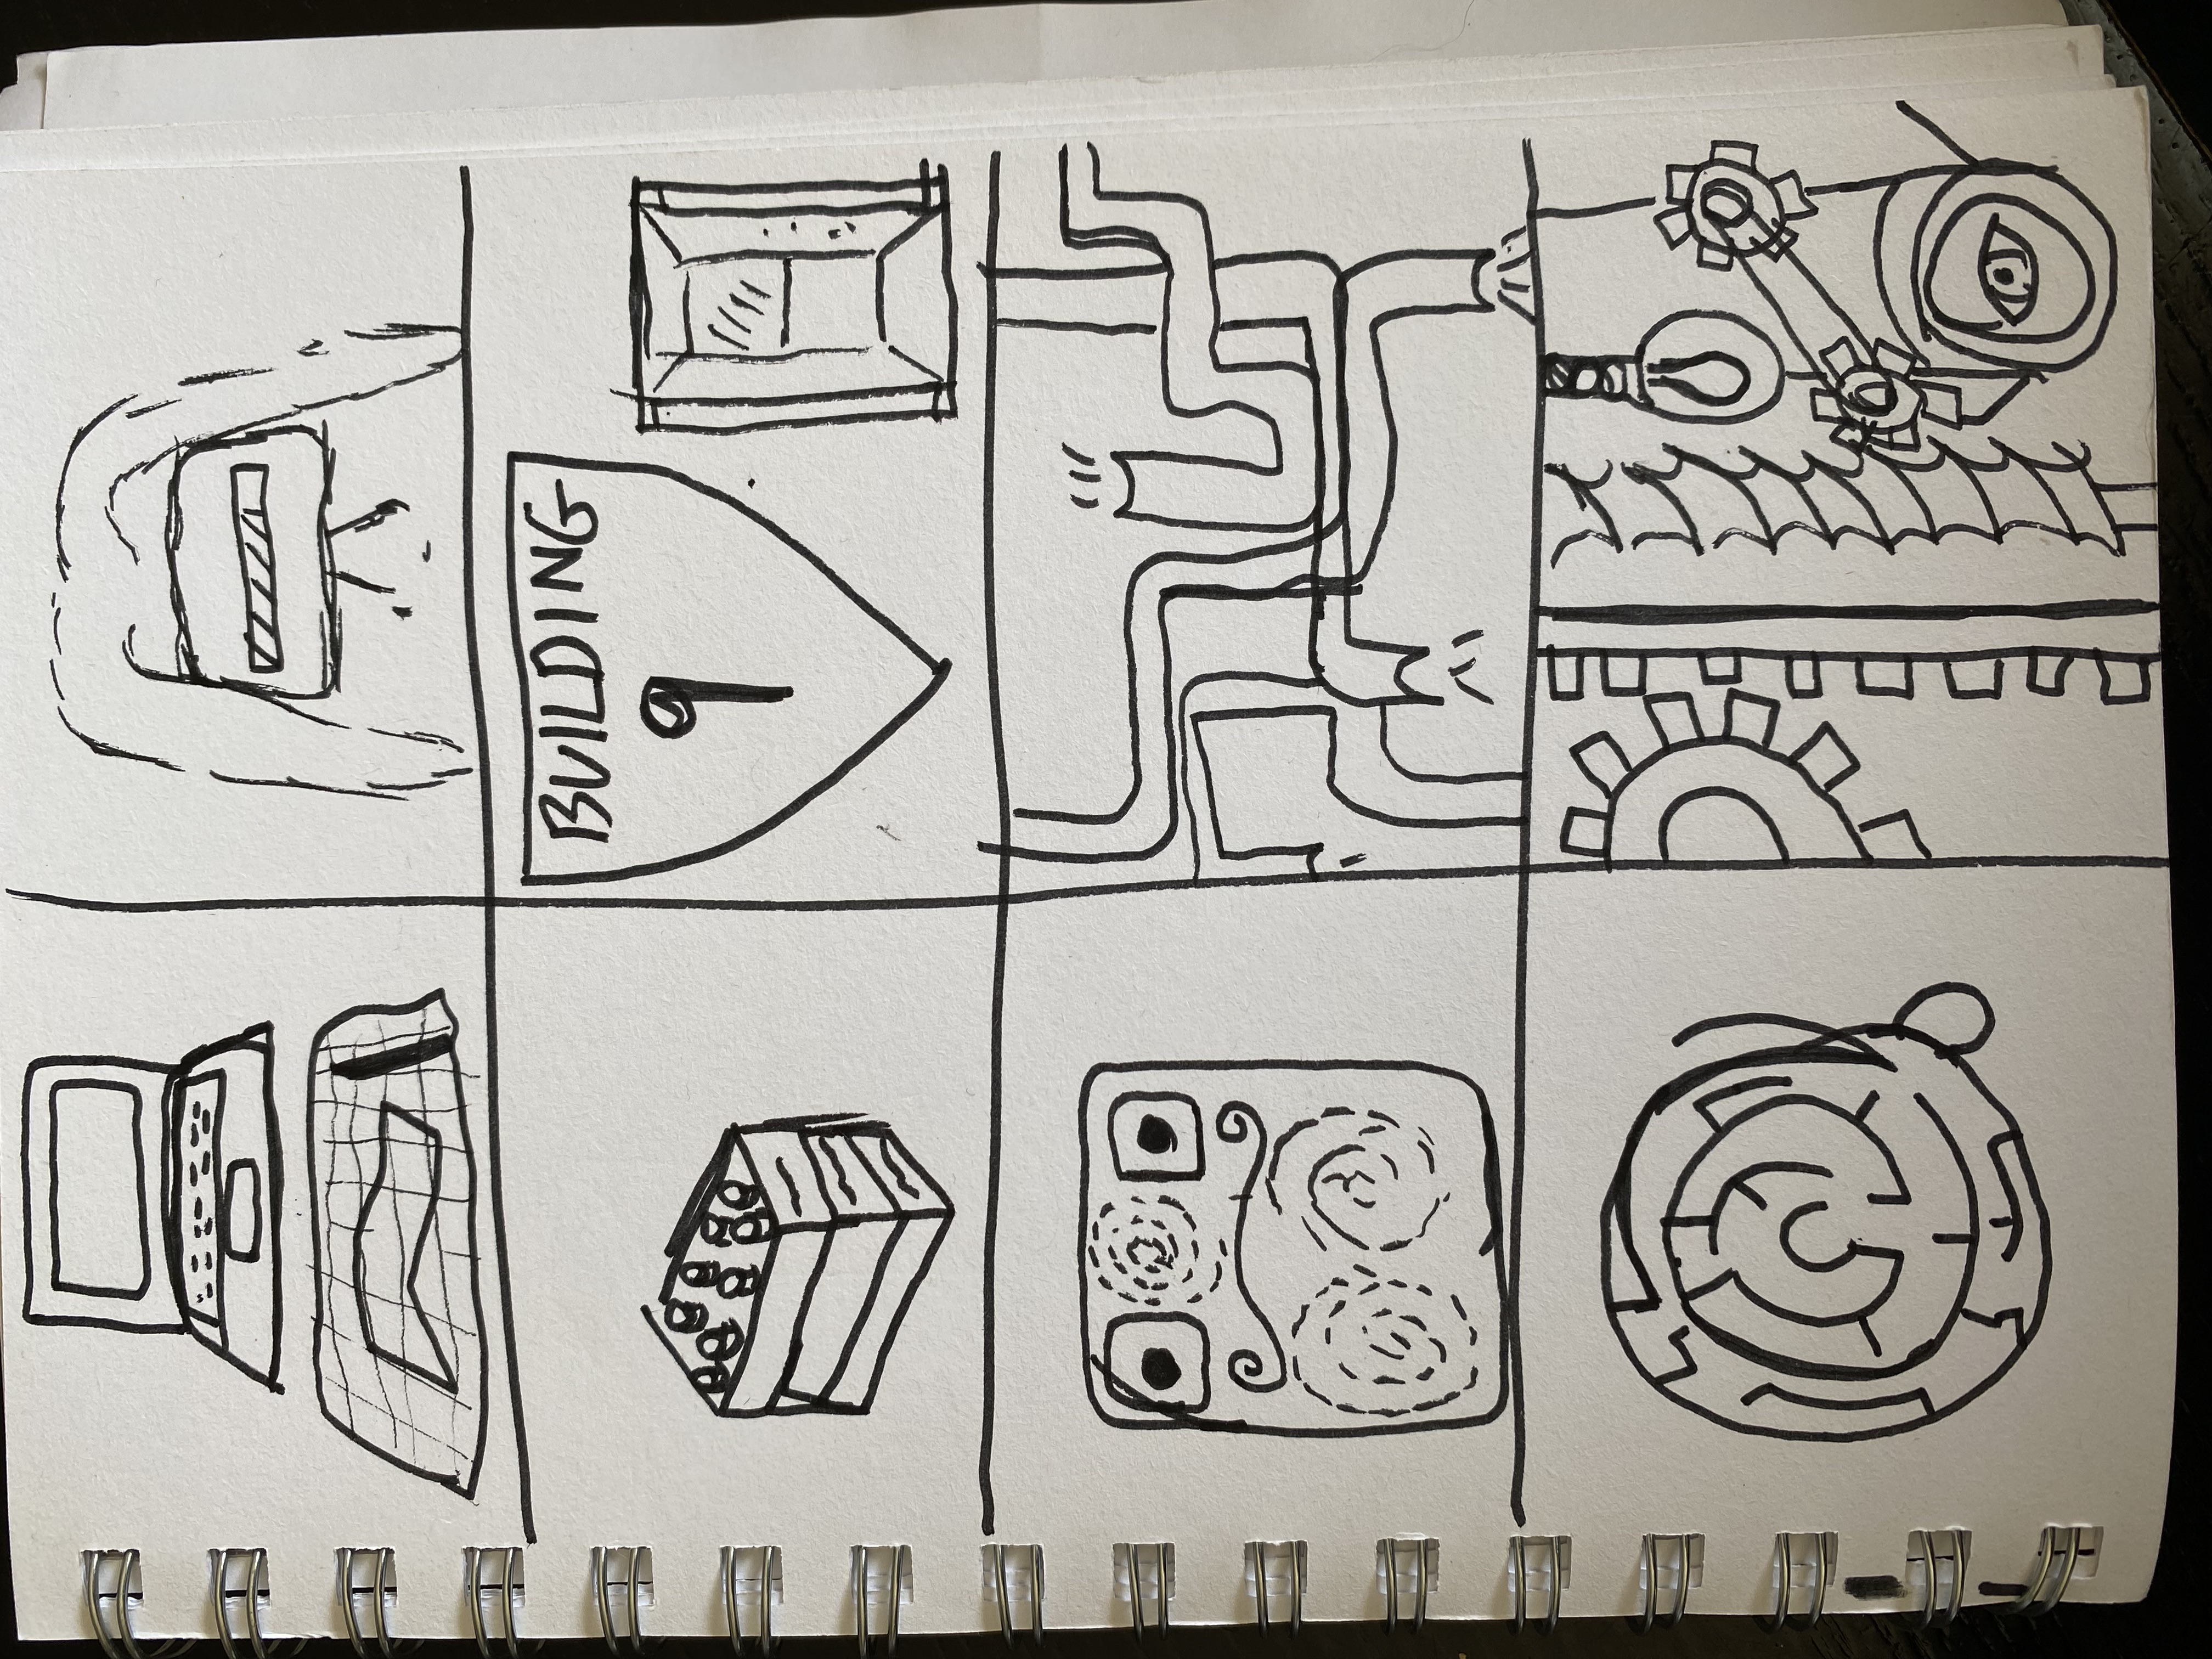 BUILDING
9